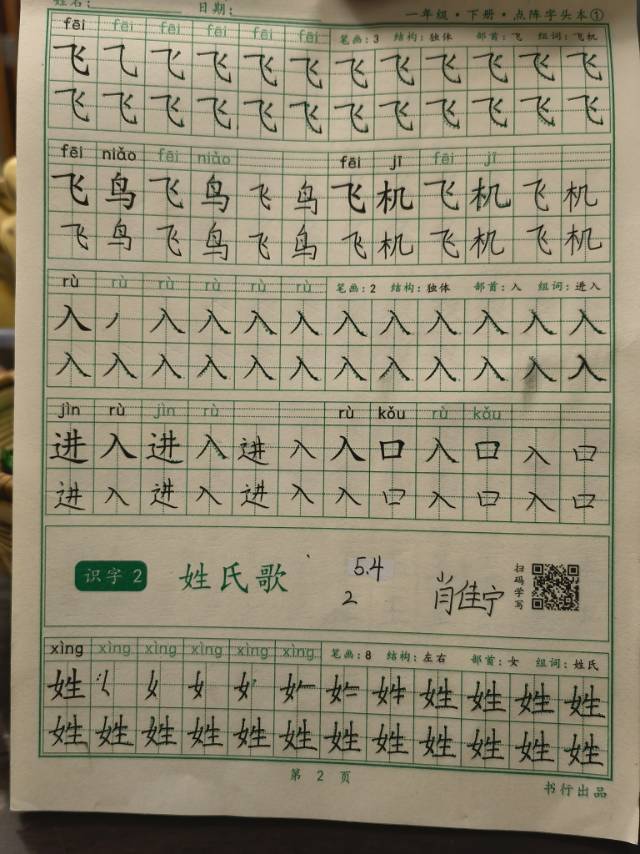 姓名： 日期： 一年级·下册·点阵字头本①
fēi fēi fēi fēi fēi fēi 笔画：3 结构：独体 部首：飞 组词：飞机
飞 ⺄ 飞 飞 飞 飞 飞 飞 飞 飞 飞 飞
飞 飞 飞 飞 飞 飞 飞 飞 飞 飞 飞 飞
fēi niǎo fēi niǎo fēi jī fēi jī
飞 鸟 飞 鸟 飞 鸟 飞 机 飞 机 飞 机
飞 鸟 飞 鸟 飞 鸟 飞 机 飞 机 飞 机
rù rù rù rù rù rù 笔画：2 结构：独体 部首：入 组词：进入
入 丿 入 入 入 入 入 入 入 入 入 入
入 入 入 入 入 入 入 入 入 入 入 入
jìn rù jìn rù rù kǒu rù kǒu
进 入 进 入 进 入 入 口 入 口 入 口
进 入 进 入 进 入 入 口 入 口 入 口
识字 2 姓氏歌 5.4 2 肖佳宁 扫码学写
xìng xìng xìng xìng xìng xìng 笔画：8 结构：左右 部首：女 组词：姓氏
姓 女 女 姓 姓 姓 姓 姓
姓 姓 姓 姓 姓 姓 姓 姓 姓 姓 姓 姓
第 2 页
书行出品